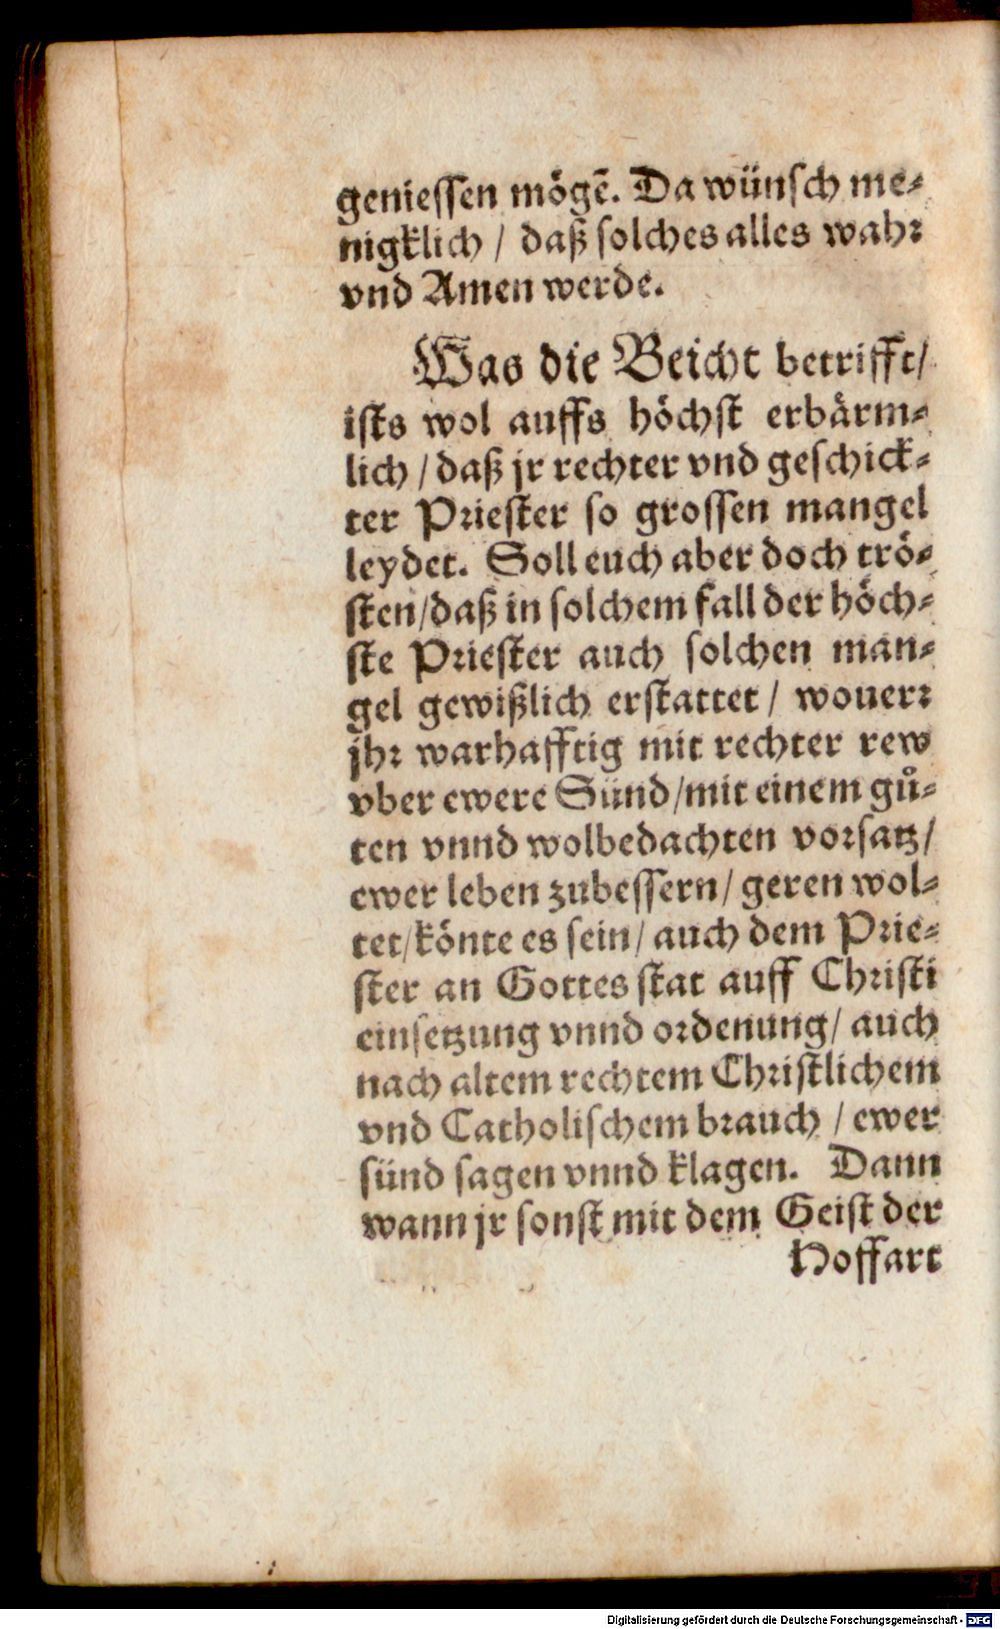 geniessen mögē. Da wünsch me⸗
nigklich / daß solches alles wahr
vnd Amen werde.
Was die Beicht betrifft/
ists wol auffs höchst erbärm⸗
lich / daß jr rechter vnd geschick⸗
ter Priester so grossen mangel
leydet. Soll euch aber doch trö⸗
sten/daß in solchem fall der höch⸗
ste Priester auch solchen man⸗
gel gewißlich erstattet / wouerr
jhr warhafftig mit rechter rew
vber ewere Sünd/mit einem gůͦ⸗
ten vnnd wolbedachten vorsatz/
ewer leben zubessern/ geren wol⸗
tet/könte es sein/ auch dem Prie⸗
ster an Gottes stat auff Christi
einsetzung vnnd ordenung/ auch
nach altem rechtem Christlichem
vnd Catholischem brauch / ewer
sünd sagen vnnd klagen. Dann
wann jr sonst mit dem Geist der
Hoffart
Digitalisierung gefördert durch die Deutsche Forschungsgemeinschaft - DFG